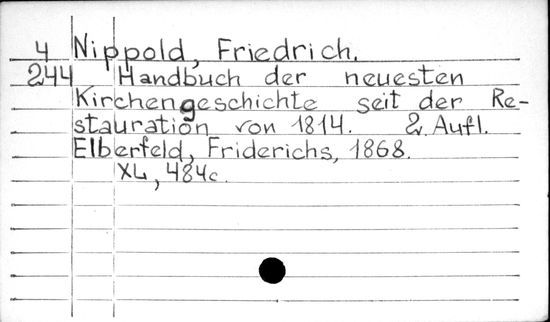 4 Nippold, Friedrich.
244 Handbuch der neuesten
Kirchengeschichte seit der Re-
stauration von 1814. 2. Aufl.
Elberfeld, Friderichs, 1868.
XL, 484c.